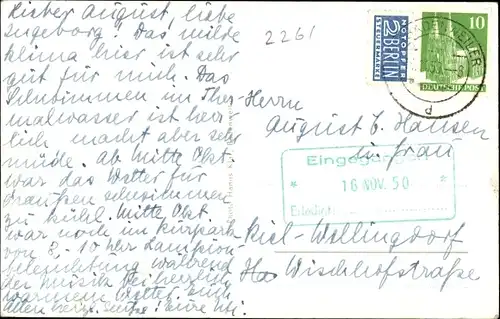 Lieber August, liebe
Ingeborg! Das milde
Klima hier ist sehr
gut für mich. Das
Schwimmen im Ther-
malwasser ist herr-
lich macht aber sehr
müde. Ab Mitte Okt.
war das Wetter für
draußen schwimmen
zu kühl. Mitte Okt.
war noch im Kurpark
von 8-10 Uhr Lampion-
beleuchtung während
der Musik bei herrlich
warmem Wetter. Euch
allen herzl. Eure
2261
NOTOPFER
2 BERLIN
STEUERMARKE
10
DEUTSCHE POST
Herrn
August C. Hansen
u. Frau
Eingegangen
* 16 NOV. 50 *
Erledigt:
Kiel-Wellingdorf
Wischhofstraße